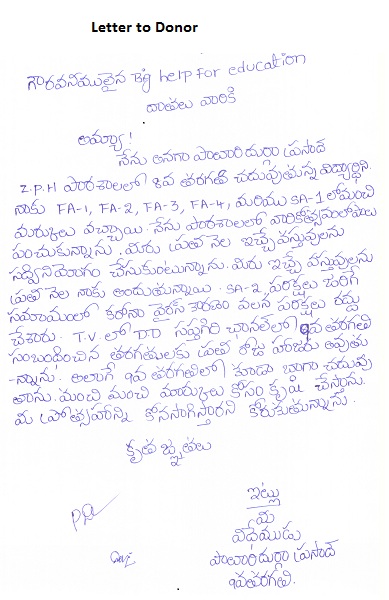 Letter to Donor
గౌరవనీయులైన Big help for education
దాతలు వారికి
అమ్మా!
నేను అనగా పాలవారి దుర్గా ప్రసాద్
Z.P.H పాఠశాలలో 8వ తరగతి చదువుతున్న విద్యార్థిని.
నాకు FA-1, FA-2, FA-3, FA-4, మరియు SA-1 లో మంచి
మార్కులు వచ్చాయి. నేను పాఠశాలలో వార్షికోత్సవంలో
పంచుకున్నాను. మీరు ప్రతి నెల ఇచ్చే వస్తువులను
సద్వినియోగం చేసుకుంటున్నాను. మీరు ఇచ్చే వస్తువులను
ప్రతి నెల నాకు అందుతున్నాయి. SA-2 పరీక్షలు జరిగే
సమయంలో కరోనా వైరస్ కారణం వలన పరీక్షలు రద్దు
చేశారు. T.V. లో DD సప్తగిరి చానల్ లో 9వ తరగతి
సంబంధించిన తరగతులకు ప్రతి రోజు హాజరు అవుతు
-న్నాను. అలాగే 9వ తరగతిలో కూడా బాగా చదువు
తాను. మంచి మంచి మార్కులు కోసం కృషి చేస్తాను.
మీ ప్రోత్సాహాన్ని కొనసాగిస్తారని కోరుకుతున్నాను.
కృతజ్ఞతలు
ఇట్లు
మీ
విధేముడు
పాలవారి దుర్గా ప్రసాద్
9వతరగతి.